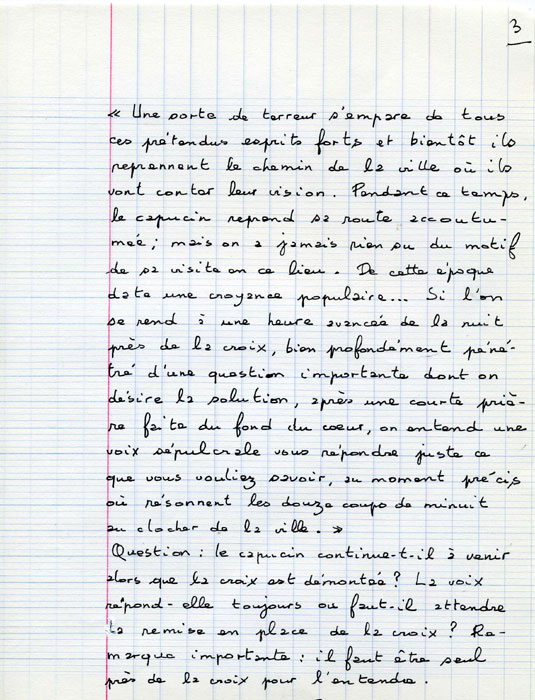 3
« Une sorte de terreur s'empare de tous
ces prétendus esprits forts et bientôt ils
reprennent le chemin de la ville où ils
vont conter leur vision. Pendant ce temps,
le capucin reprend sa route accoutu-
mée ; mais on a jamais rien su du motif
de sa visite en ce lieu. De cette époque
date une croyance populaire... Si l'on
se rend à une heure avancée de la nuit
près de la croix, bien profondément péné-
tré d'une question importante dont on
désire la solution, après une courte priè-
re faite du fond du coeur, on entend une
voix sépulcrale vous répondre juste ce
que vous vouliez savoir, au moment précis
où résonnent les douze coups de minuit
au clocher de la ville. »
Question : le capucin continue-t-il à venir
alors que la croix est démontée ? La voix
répond-elle toujours ou faut-il attendre
la remise en place de la croix ? Re-
marque importante : il faut être seul
près de la croix pour l'entendre.